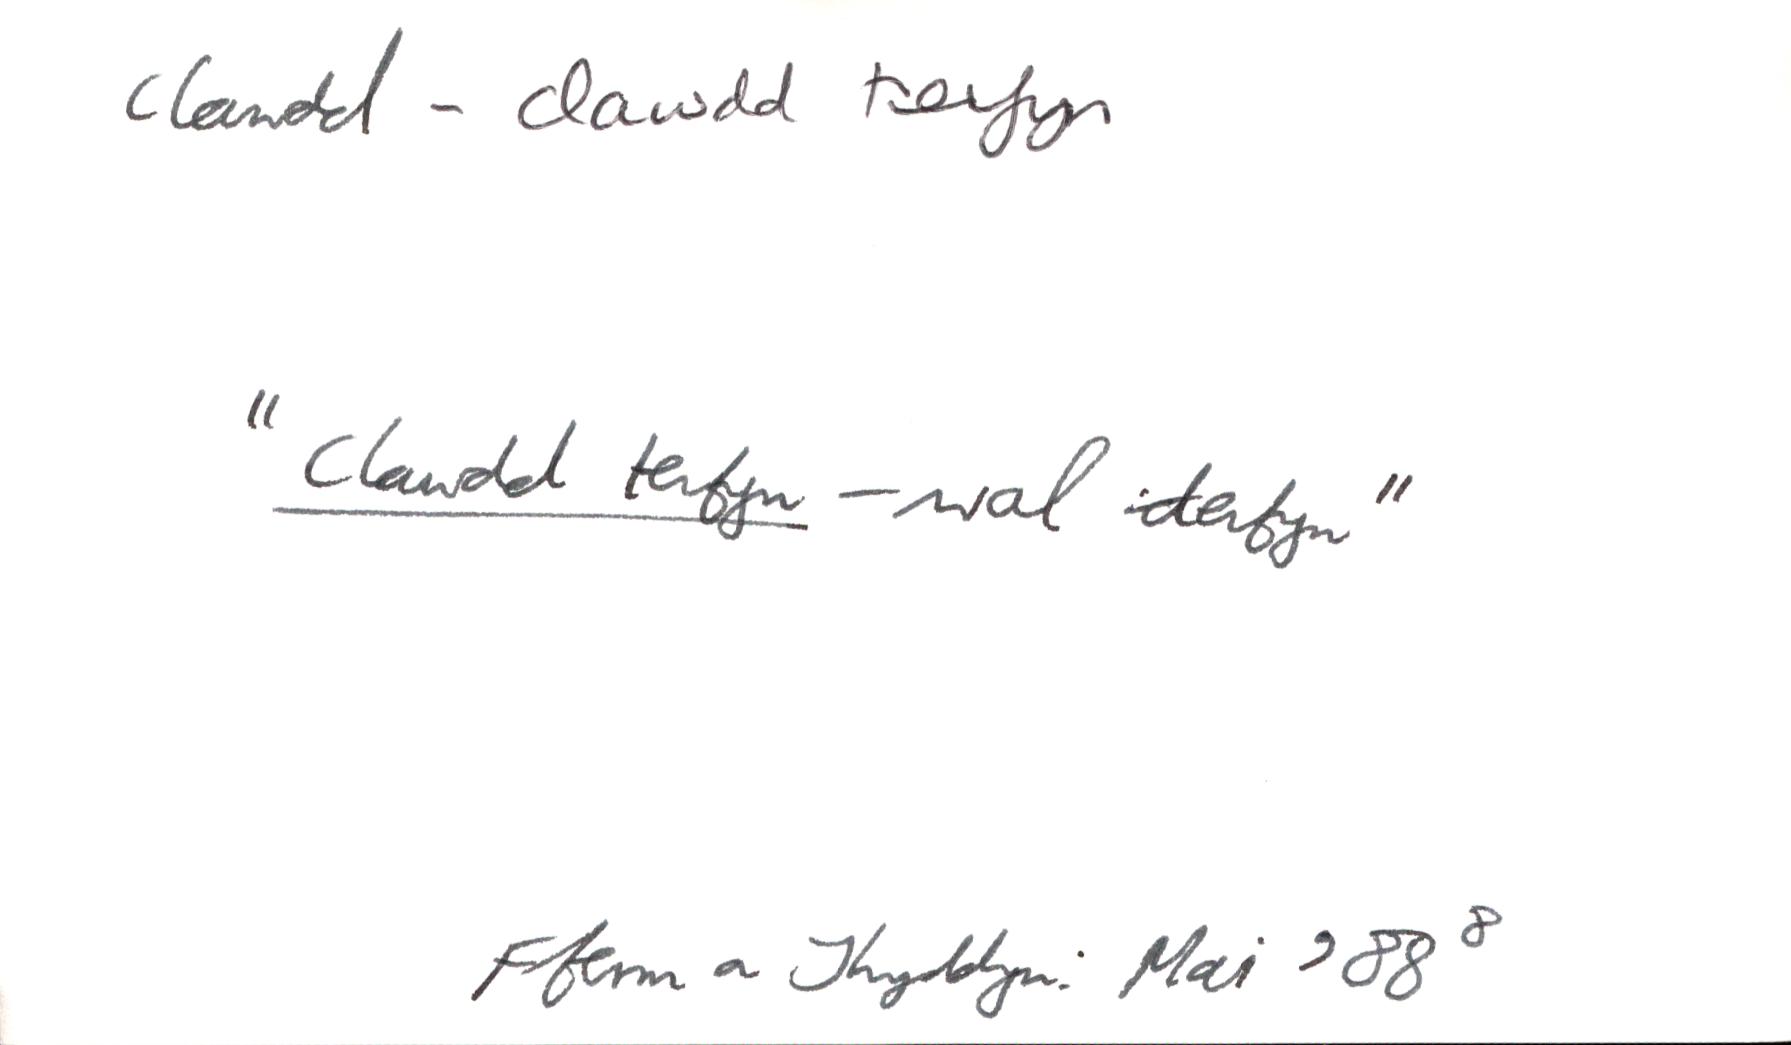 clawdd - clawdd terfyn
"Clawdd terfyn - wal derfyn"
Fferm a Thyddyn: Mai '88 8